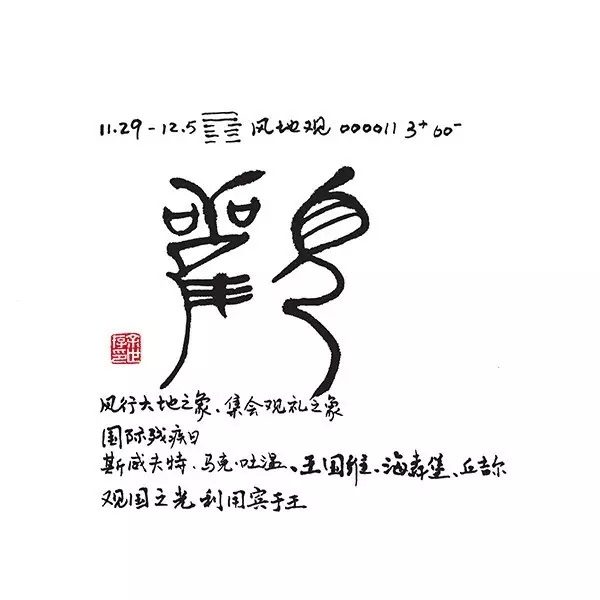 11.29-12.5 ䷓ 风地观 000011 3⁺ 60⁻
觀
余世存印
风行大地之象、集会观礼之象
国际残疾日
斯威夫特、马克·吐温、王国维、海森堡、丘吉尔
观国之光 利用宾于王